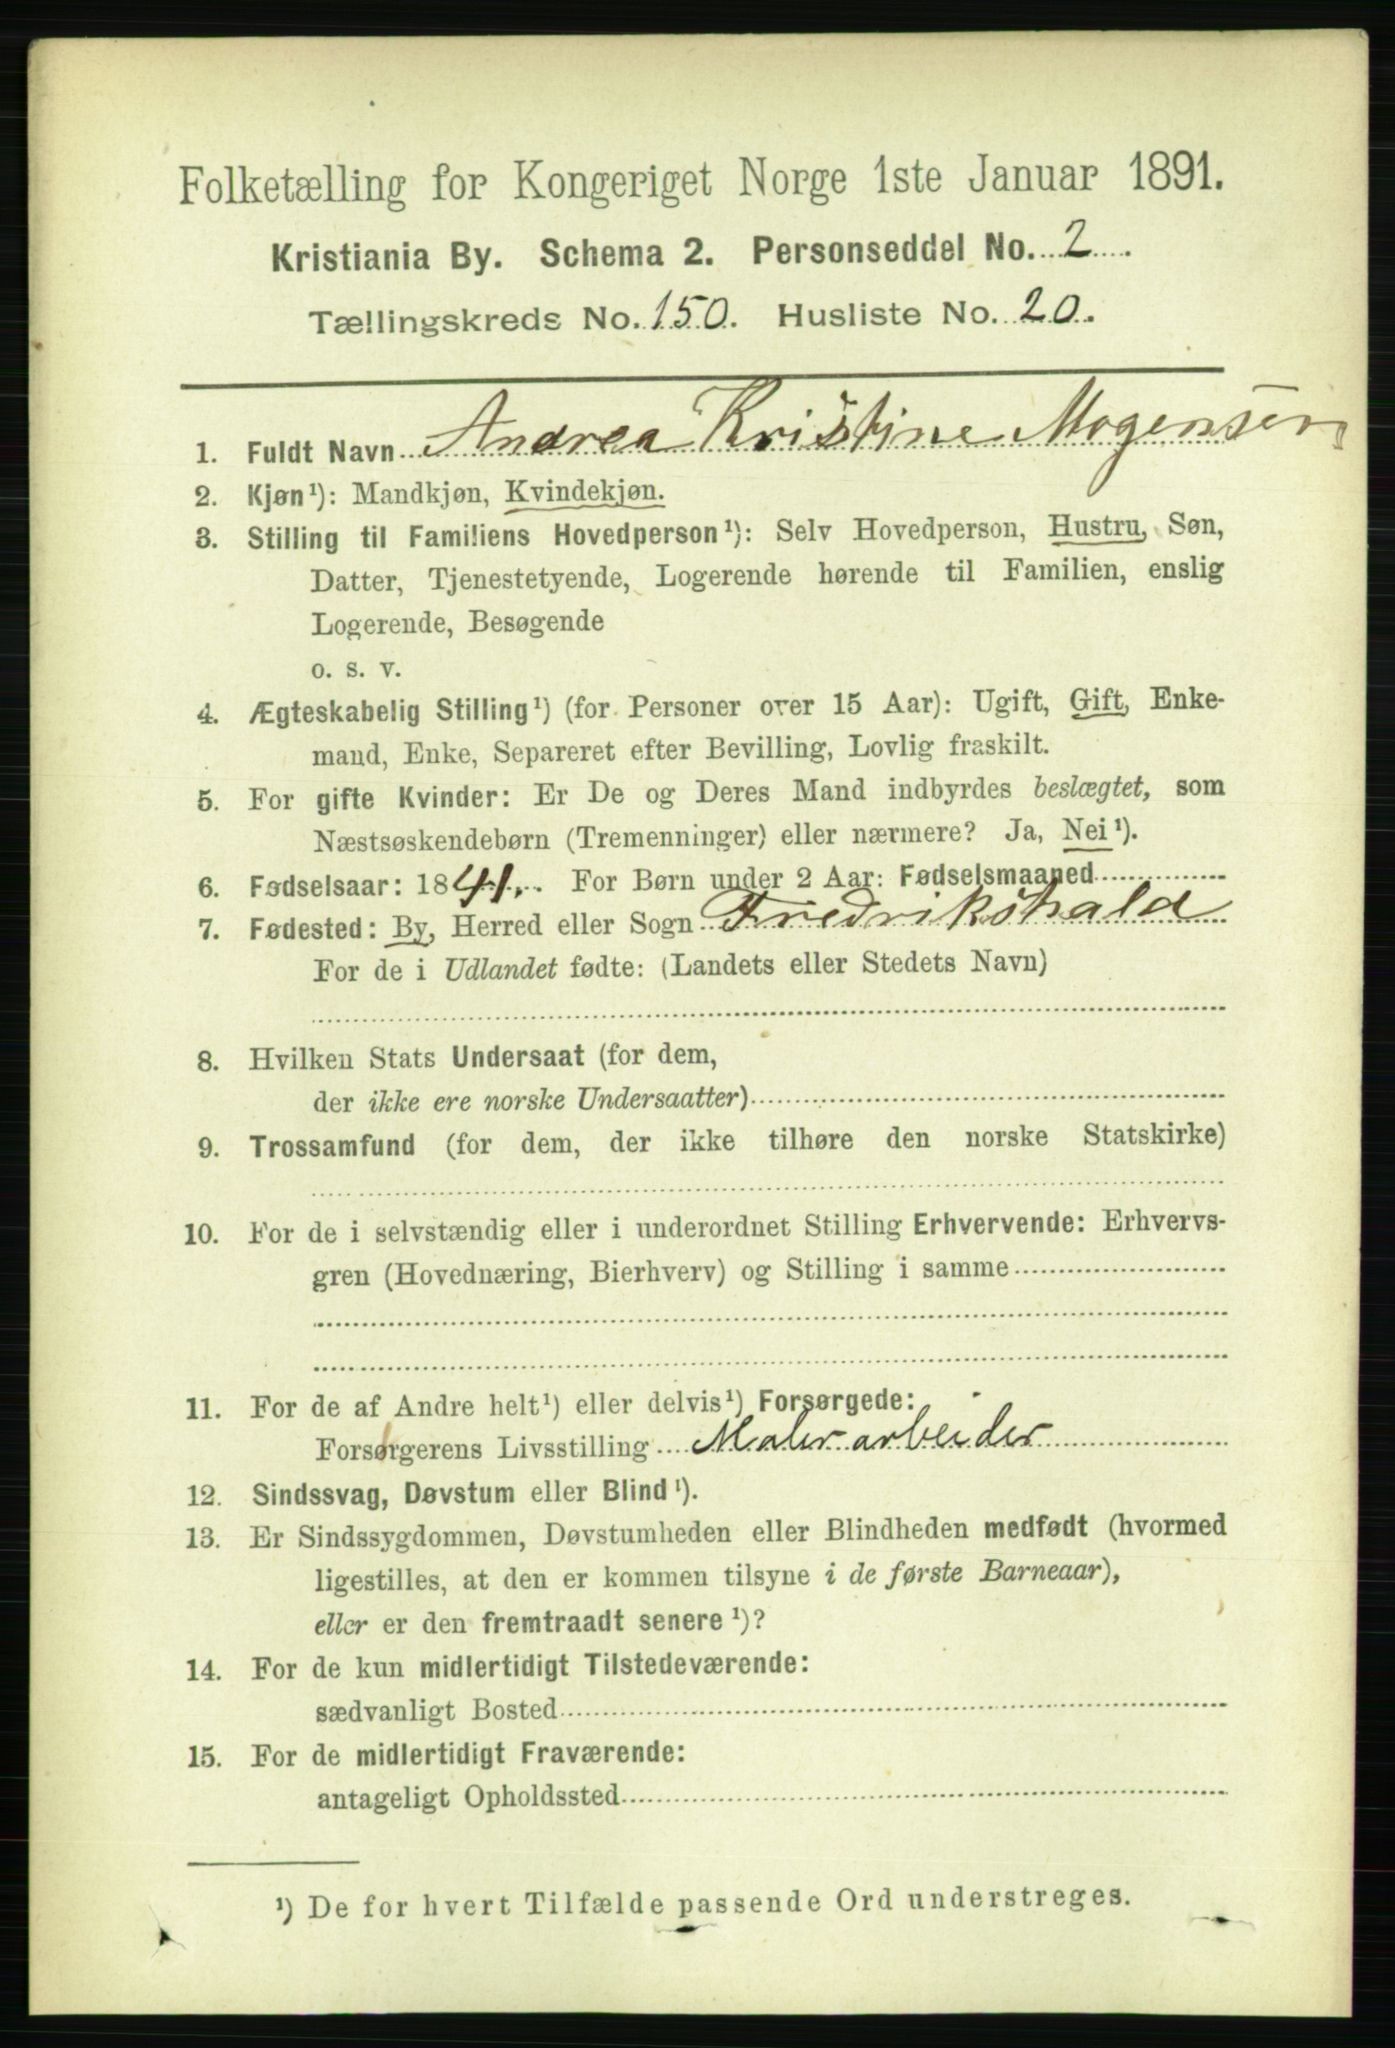 Folketælling for Kongeriget Norge 1ste Januar 1891.
Kristiania By. Schema 2. Personseddel No. 2.
Tællingskreds No. 150. Husliste No. 20.
1. Fuldt Navn Andrea Kristine Mogensen
2. Kjøn¹): Mandkjøn, Kvindekjøn.
3. Stilling til Familiens Hovedperson¹): Selv Hovedperson, Hustru, Søn,
Datter, Tjenestetyende, Logerende hørende til Familien, enslig
Logerende, Besøgende
o. s. v.
4. Ægteskabelig Stilling¹) (for Personer over 15 Aar): Ugift, Gift, Enke-
mand, Enke, Separeret efter Bevilling, Lovlig fraskilt.
5. For gifte Kvinder: Er De og Deres Mand indbyrdes beslægtet, som
Næstsøskendebørn (Tremenninger) eller nærmere? Ja, Nei¹).
6. Fødselsaar: 1841. For Børn under 2 Aar: Fødselsmaaned
7. Fødested: By, Herred eller Sogn Fredrikshald
For de i Udlandet fødte: (Landets eller Stedets Navn)
8. Hvilken Stats Undersaat (for dem,
der ikke ere norske Undersaatter)
9. Trossamfund (for dem, der ikke tilhøre den norske Statskirke)
10. For de i selvstændig eller i underordnet Stilling Erhvervende: Erhvervs-
gren (Hovednæring, Bierhverv) og Stilling i samme
11. For de af Andre helt¹) eller delvis¹) Forsørgede:
Forsørgerens Livsstilling Malerarbeider
12. Sindssvag, Døvstum eller Blind¹).
13. Er Sindssygdommen, Døvstumheden eller Blindheden medfødt (hvormed
ligestilles, at den er kommen tilsyne i de første Barneaar),
eller er den fremtraadt senere¹)?
14. For de kun midlertidigt Tilstedeværende:
sædvanligt Bosted
15. For de midlertidigt Fraværende:
antageligt Opholdssted
¹) De for hvert Tilfælde passende Ord understreges.